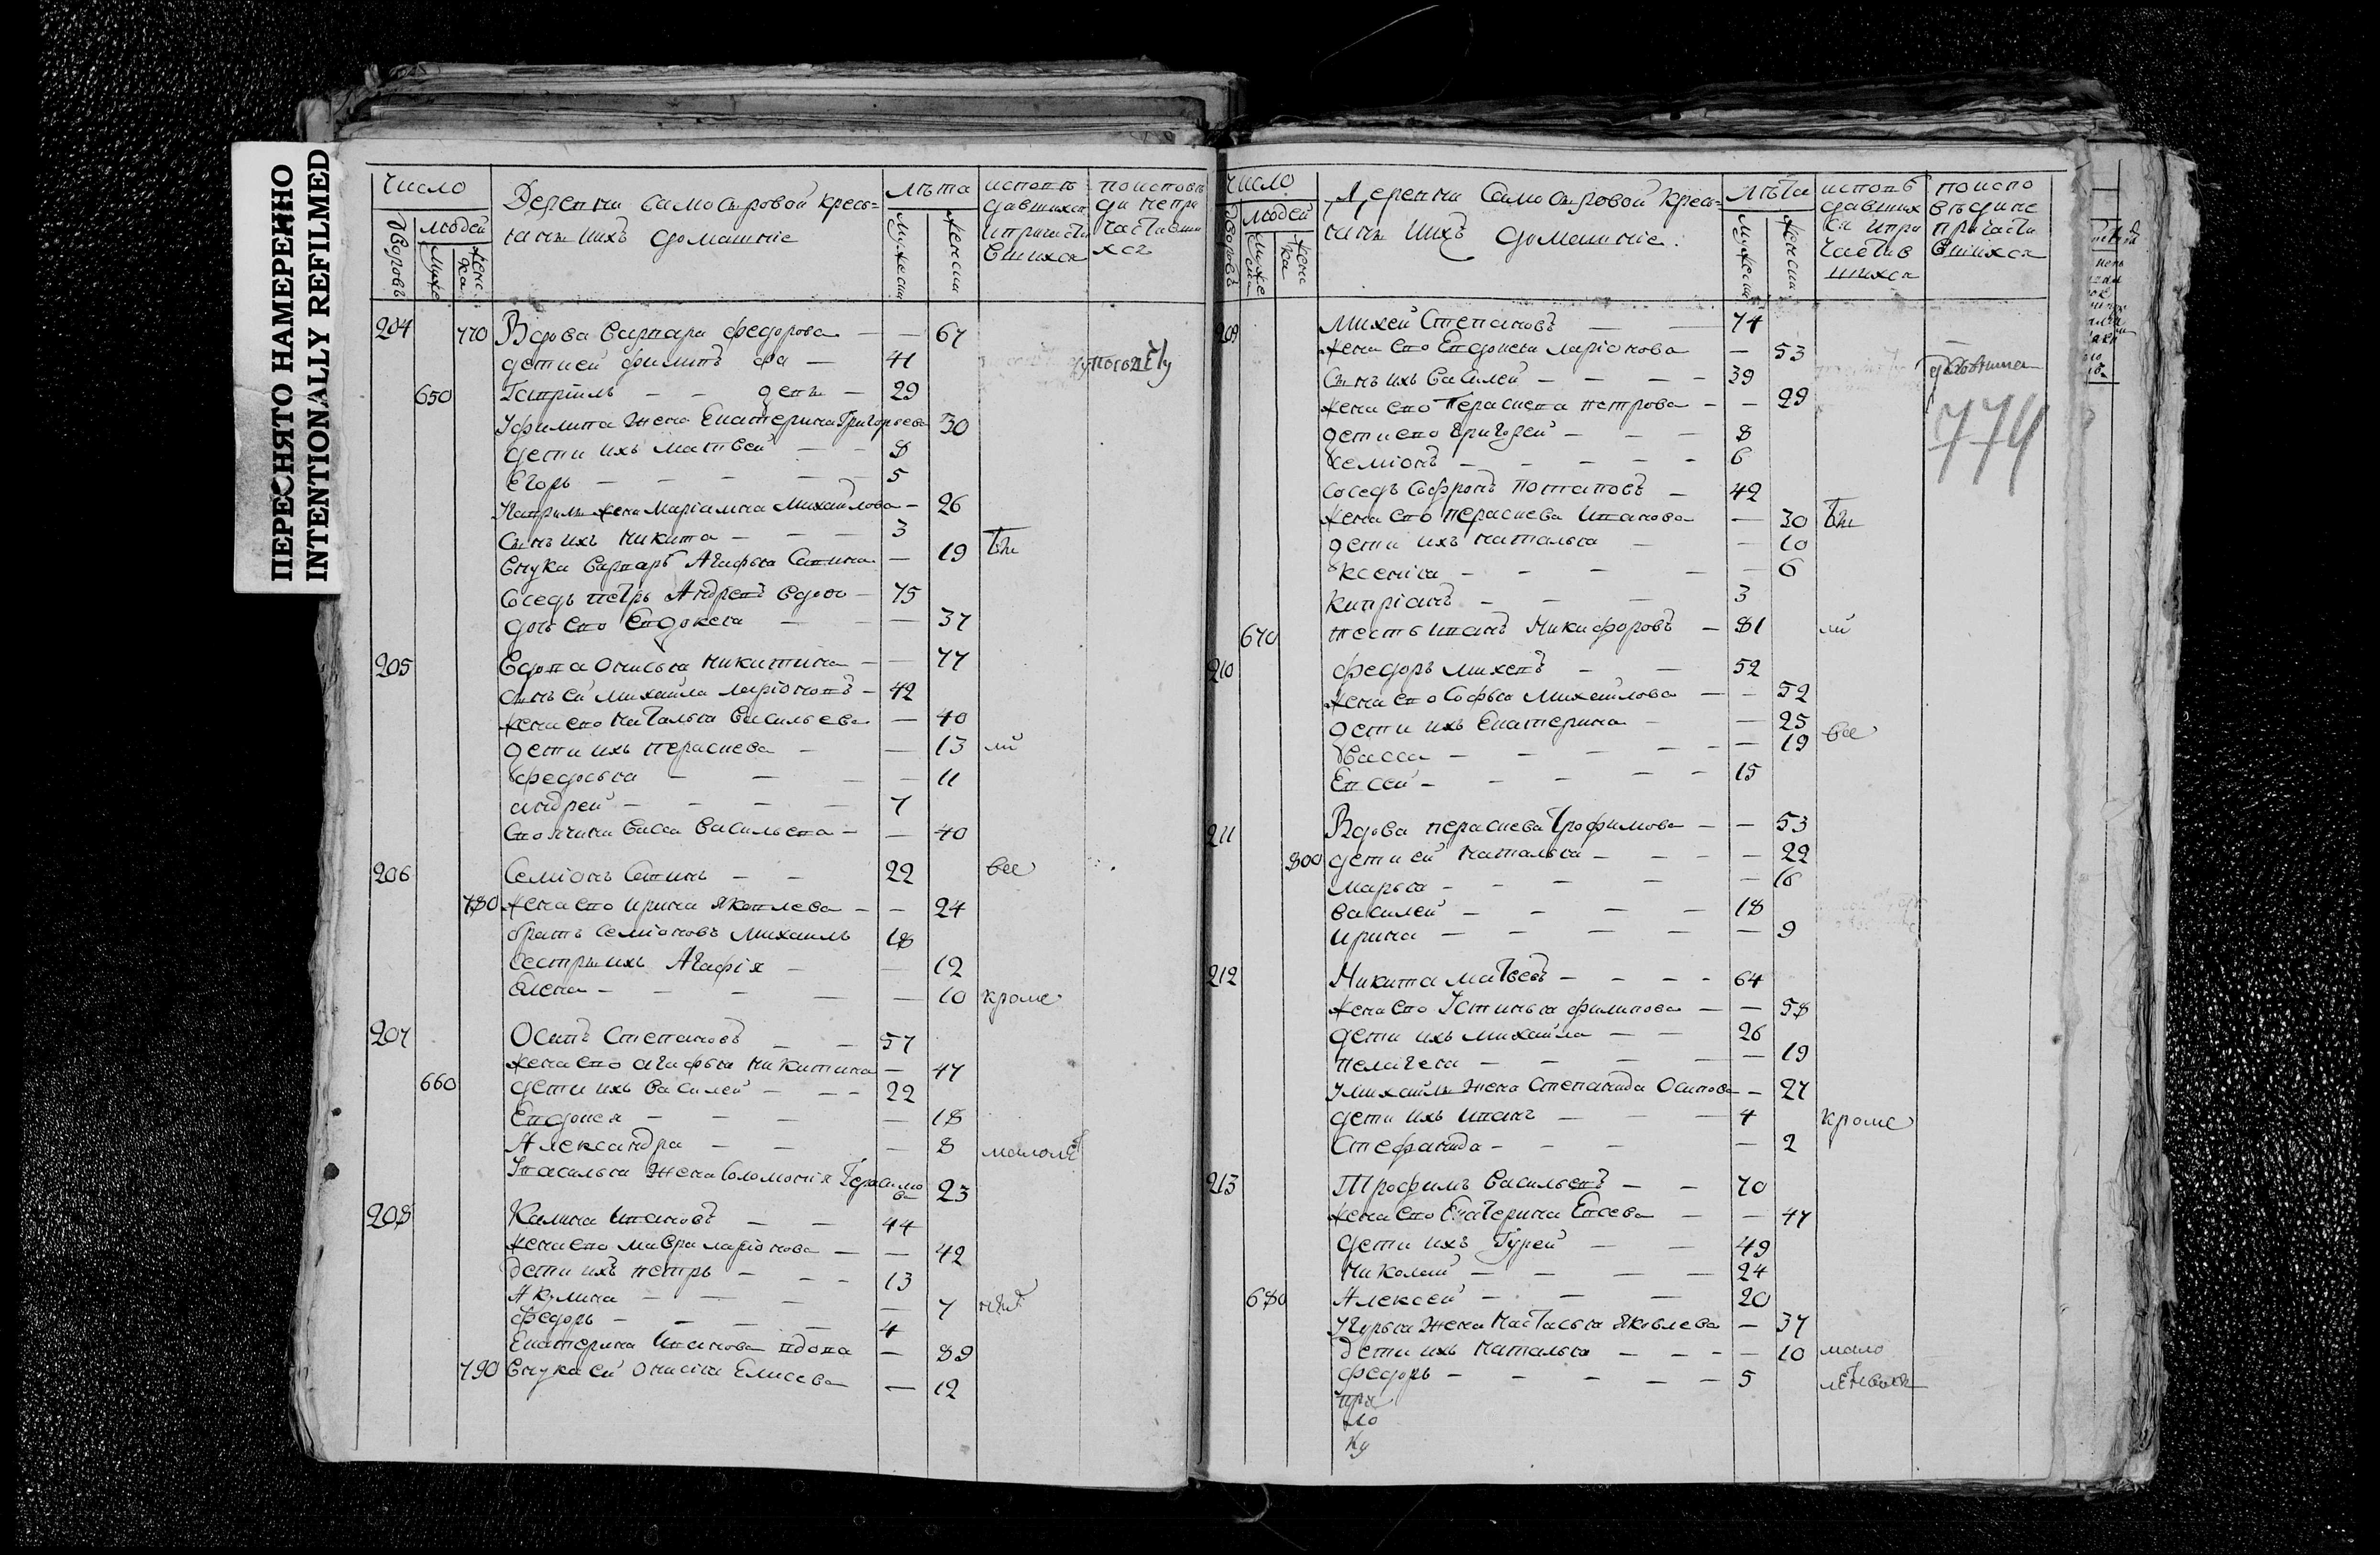 ПЕРЕСНЯТО НАМЕРЕННО
INTENTIONALLY REFILMED
Число
Дворовъ
людей
Муже
жен
ка
Деревни Самосыровой кресь=
янъ ихъ домашніе
лѣта
мужески
женски
исповѣ
давшихся
ипричасти
вшихся
поисповѣ
ди непри
частивши
хся
204 770 Вдова Варвара Федорова — — 67
детией Филипъ — 41
650 Гаврiилъ — — — 29
Уфилипа жена Екатерина Григорьева 30
дети ихъ Матвей — — 8
Егоръ — — — — 5
Гаврилы жена Маріамна Михаилова — 26
Сынъ ихъ Никита — — — 3
Внука Варвары Агафья Савина — 19
Соседъ петръ Андреевъ вдовъ — 75
дочь его Евдокея — — — 37
205 Вдова Онисья Никитина — — 77
сынъ ей Михаила Ларіоновъ — 42
жена его Наталья Васильева — 40
дети ихъ Парасцева — — 13
Федосья — — — — 11
андрей — — — — 7
Своячина Васса Васильева — — 40
206 Семіонъ Савинъ — — 22 все
780 жена его Ирина Яковлева — — 24
братъ Семіоновъ Михаилъ 18
Сестры ихъ Агафія — — 12
Елена — — — — — 10 кроме
207 Осипъ Степановъ — — 57
жена его агафья Никитина — 47
660 дети ихъ Василей — — — 22
Евдокея — — — — 18
Александра — — — 8 малолѣ
Увасилья жена Соломонія Герасимо
ва 23
208 Калина Ивановъ — — 44
жена его Мавра Ларіонова — — 42
дети ихъ петръ — — — 13
Акулина — — — — 7
Федоръ — — — — 4
Екатерина Иванова вдова — 89
790 Внука ей Онисiа Елисева — 12
Число
Дворовъ
людей
Муже
ска
жен
ка
Деревни Самосыровой кресь=
янъ ихъ домашніе
лѣта
мужески
женски
исповѣ
давших
ся ипри
частив
шихся
поиспо
вѣдине
причасти
вшихся
209 Михей Степановъ — — 74
жена его Евдокея Ларіонова — 53
Сынъ ихъ Василей — — — — 39
жена его Парасцева петрова — — 29
774
дети его Григорей — — — 8
Семіонъ — — — — — 6
Соседъ Софронъ Потаповъ — 42
жена его Парасцева Иванова — 30
дети ихъ Наталья — — 10
Ксенія — — — — — 6
Кипріанъ — — — 3
670 тесть Иванъ Никифоровъ — 81
210 Федоръ Михеевъ — — 52
жена его Софья Михаилова — — 52
дети ихъ Екатерина — — 25
Васса — — — — — — 19 все
Евсей — — — — — 15
211 Вдова Парасцева Трофимова — — 53
800 дети ей Наталья — — — — 22
Марья — — — — — 16
Василей — — — — 18
Ирина — — — — — 9
212 Никита Матвеевъ — — — — 64
жена его Устинья Филипова — — 58
дети ихъ Михаила — — 26
Пелагея — — — — — 19
Умихаилы жена Степанида Осипова — 27
дети ихъ Иванъ — — — 4 кроме
Стефанида — — — — 2
213 Трофимъ Васильевъ — — 70
жена его Екатерина Евсева — — 47
дети ихъ Гурей — — 49
Николай — — — — 24
680 Алексей — — — 20
Угурья жена Настасья Яковлева — 37
дети ихъ Наталья — — — — 10 мало
Федоръ — — — — — 5